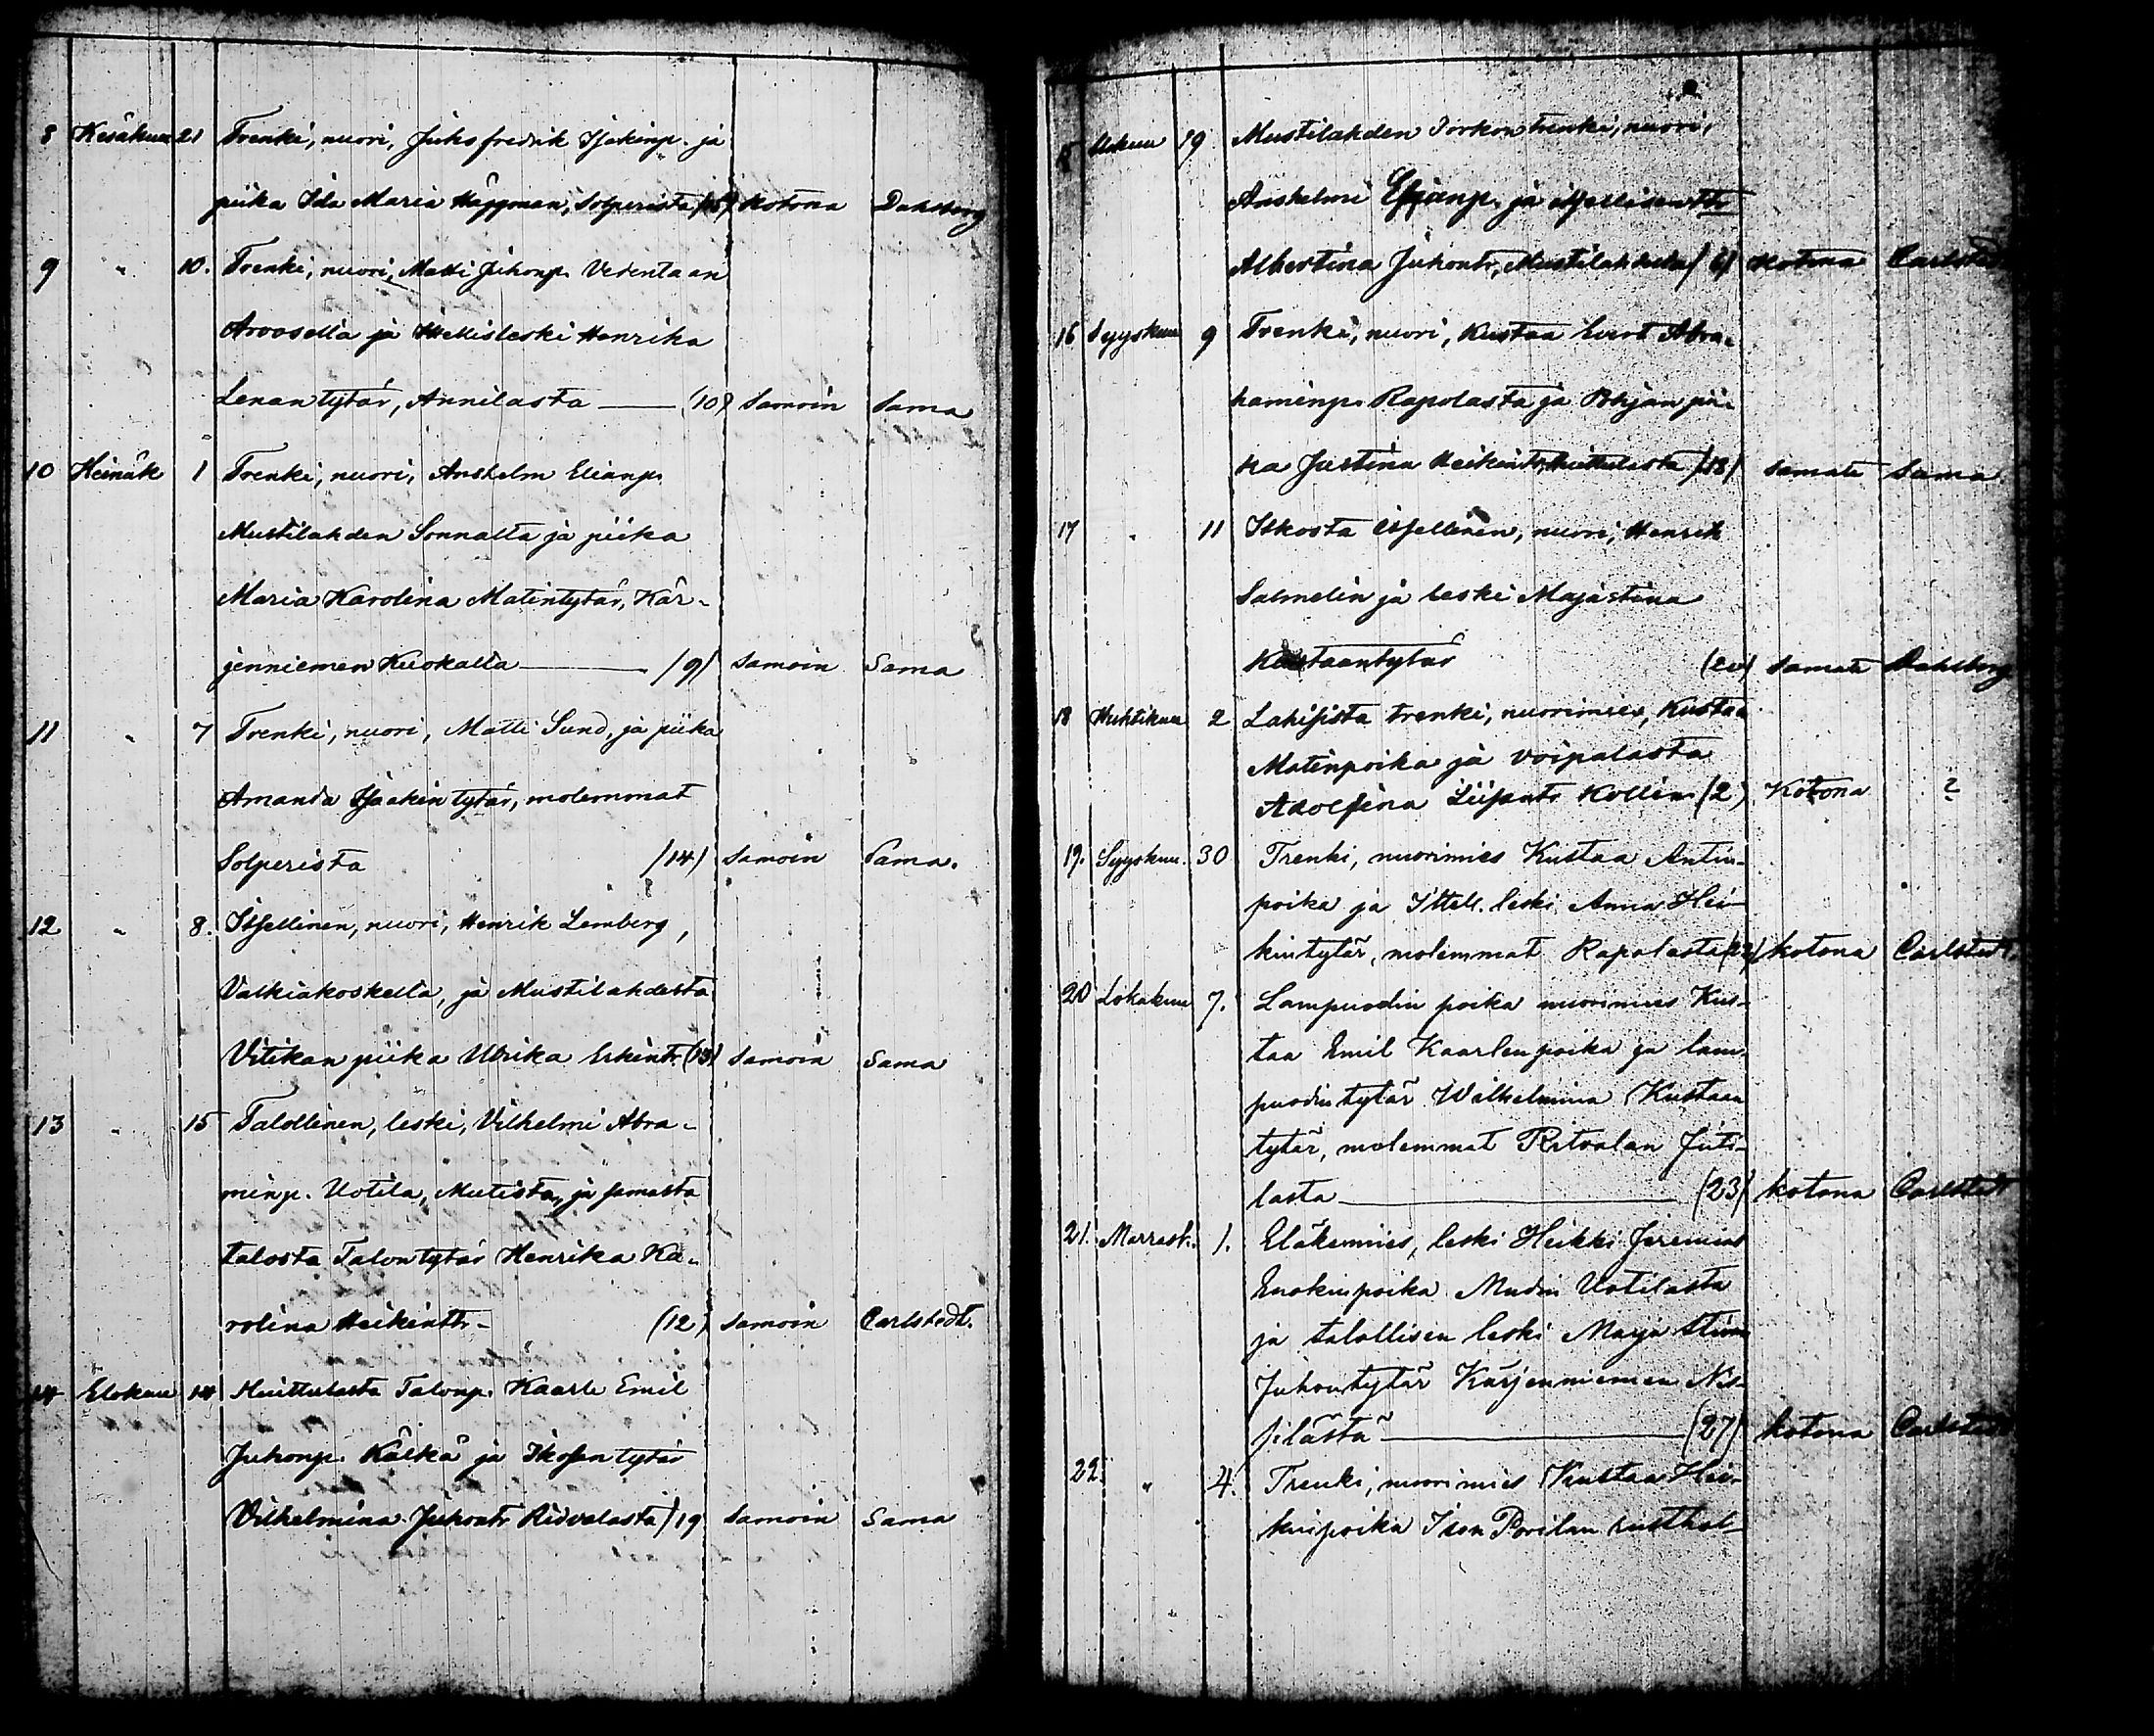 8 Kesäkuu 21 Trenki, nuori, Juho fredrik Isakinp. ja
piika Ida Maria Häggman, Solperista (15) Kotona Dahlberg
9 " 10. Trenki, nuori, Matti Juhonp. Vedentaan
Arvosella ja Itellisleski Henrika
Lenantytär, Annilasta — (10) Samoin Sama
10 Heinäk 1 Trenki, nuori, Anshelm Elianp.
Mustilahden Sonnalta ja piika
Maria Karolina Matintytär, Kär-
jenniemen Kuokalla — (9) Samoin Sama
11 " 7 Trenki, nuori, Matti Sund, ja piika
Amanda Isaakintytär, molemmat
Solperista (14) Samoin Sama.
12 " 8. Itsellinen, nuori, Henrik Lemberg,
Valkiakoskella, ja Mustilahdesta
Vitikan piika Ulrika Erkint. (13) Samoin Sama
13 " 15 Talollinen, leski, Vilhelmi Abra-
minp. Uotila, Mutista, ja samasta
talosta Talontytär Henrika Ka-
rolina Heikintr. (12) Samoin Carlstedt.
14 Elokuu 14 Huittulasta Talonp. Kaarle Emil
Juhonp. Kälkä ja Ikosen tytär
Vilhelmina Juhontr Ridvalasta (19 Samoin Sama
15 Elokuu 19 Mustilahden Torkon trenki, nuori,
Anshelmi Elianp. ja itsellisentr
Albertina Juhontr, Mustilahdella (6) Kotona Carlstedt
16 Syyskuu 9 Trenki, nuori, Kustaa Evert Abra-
haminp. Rapolasta ja Pohjan pii-
ka Justina Heikintr, Huittulasta (18) samate Sama
17 " 11 Itkosta itsellinen, nuori, Henrik
Salmelin ja leski Majastina
Kustaantytär (20) samate Dahlberg
18 Huhtikuu 2 Lahisista trenki, nuorimies, Kustaa
Matinpoika ja voipalasta
Adolfina Liisantr Kollin (2) Kotona ?
19. Syyskuu. 30 Trenki, nuorimies Kustaa Antin-
poika ja Ittell. leski Anna Hei-
kintytär, molemmat Rapolasta (22) kotona Carlstedt.
20 Lokakuu 7. Lampuodin poika nuorimies Kus-
taa Emil Kaarlenpoika ja lam-
puodintytär Wilhelmina Kustaan
tytär, molemmat Ritvalan Juti-
lasta — (23) kotona Carlstedt
21. Marrask. 1. Eläkemies, leski Heikki Jeremias
Enokinpoika Mudin Uotilasta
ja talollisen leski Maja Stina
Juhontytär Kärjenniemen Nis-
silästä — (27) kotona Carlstedt
22. " 4. Trenki, nuorimies Kustaa Hei-
kinpoika Ison Porilan rusthol-